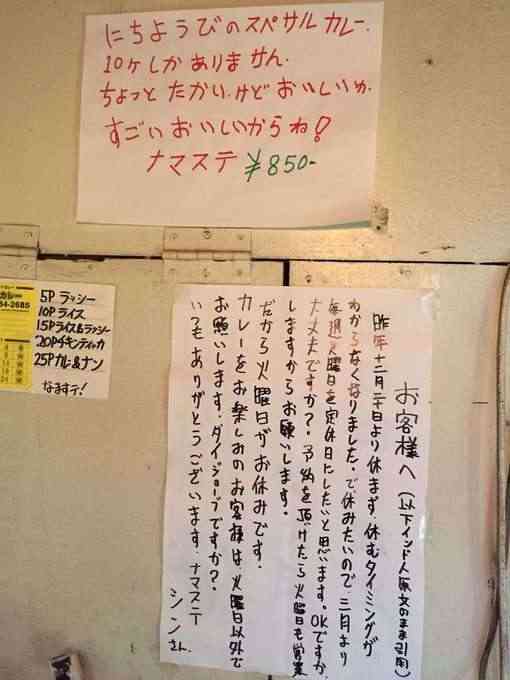 にちようびのスペサルカレー.
10ケしかありません.
ちょっとたかいけどおいしいが.
すごいおいしいからね!
ナマステ ¥850-
84-2685
5P ラッシー
10P ライス
15P ライス&ラッシー
20P チキンティッカ
25P カレー&ナン
なますテ!
お客様へ(以下インド人原文のまま引用)
昨年十二月二十日より休まず、休むタイミングが
わからなくなりました。で休みたいので、三月より
毎週火曜日を定休日にしたいと思います。OKですか。
大丈夫ですか?予約を頂けたら火曜日も営業
しますからお願いします。
だから火曜日がお休みです。
カレーをお楽しみのお客様は、火曜日以外で
お願いします。ダイジョーブですか?
いつもありがとうございます。ナマステー
シンさん